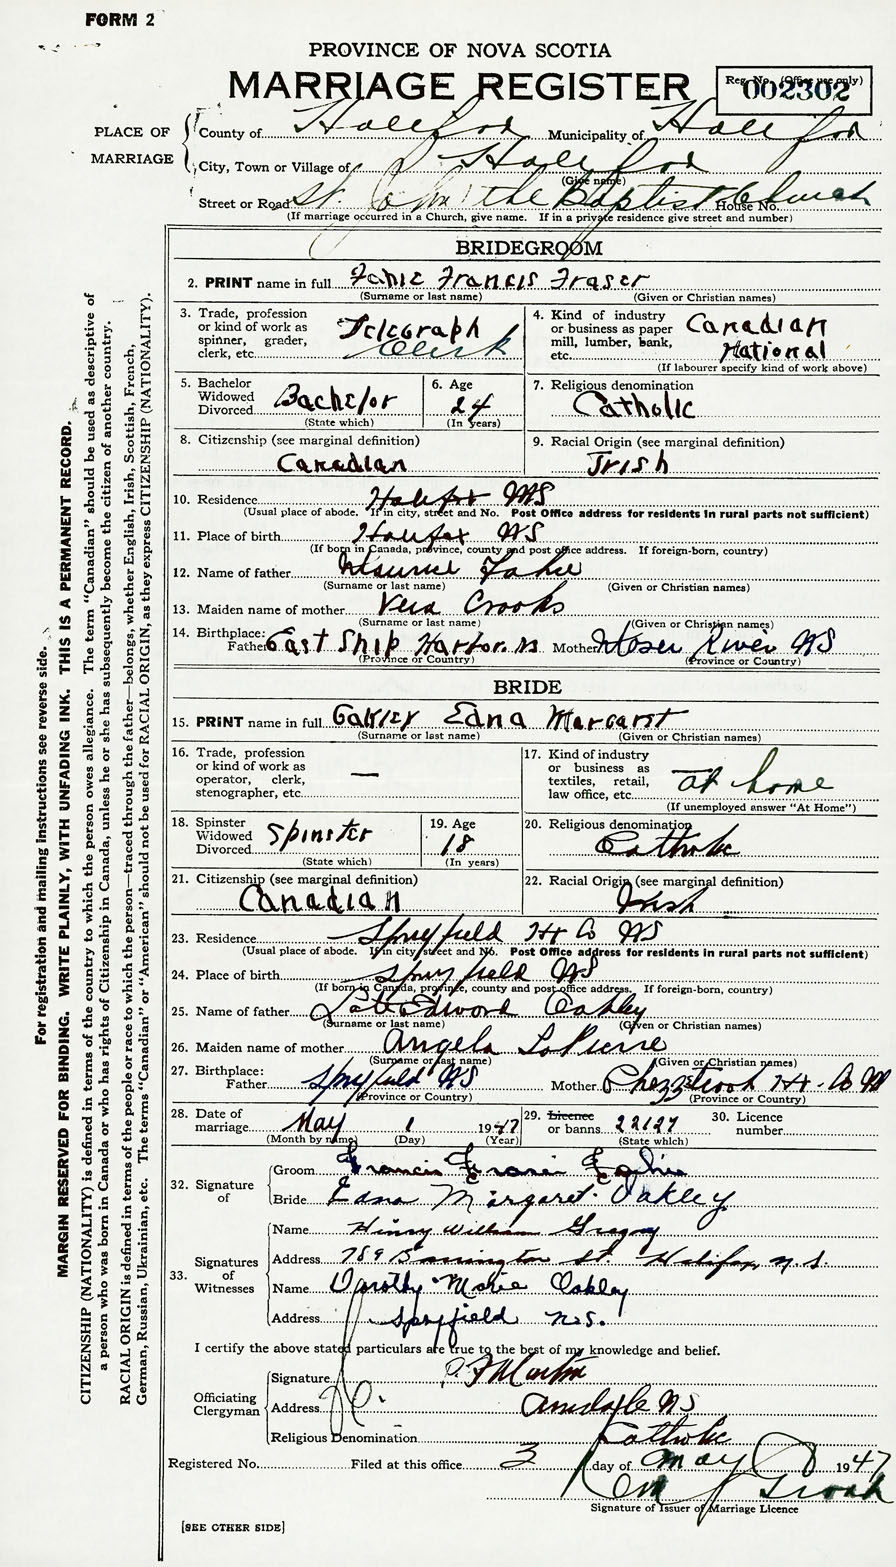 FORM 2
PROVINCE OF NOVA SCOTIA
MARRIAGE REGISTER
Reg. No. (Office use only)
002302
PLACE OF MARRIAGE
County of Halifax Municipality of Halifax
City, Town or Village of Halifax
(Give name)
Street or Road St. John the Baptist Church House No.
(If marriage occurred in a Church, give name. If in a private residence give street and number)
BRIDEGROOM
2. PRINT name in full Fahie Francis Fraser
(Surname or last name) (Given or Christian names)
3. Trade, profession or kind of work as spinner, grader, clerk, etc. Telegraph Clerk
4. Kind of industry or business as paper mill, lumber, bank, etc. Canadian National
(If labourer specify kind of work above)
5. Bachelor Widowed Divorced Bachelor
(State which)
6. Age 24
(In years)
7. Religious denomination Catholic
8. Citizenship (see marginal definition) Canadian
9. Racial Origin (see marginal definition) Irish
10. Residence Halifax NS
(Usual place of abode. If in city, street and No. Post Office address for residents in rural parts not sufficient)
11. Place of birth Halifax NS
(If born in Canada, province, county and post office address. If foreign-born, country)
12. Name of father Fahie
(Surname or last name) (Given or Christian names)
13. Maiden name of mother Vera Crooks
(Surname or last name) (Given or Christian names)
14. Birthplace: Father East Ship Harbor NS Mother Moser River NS
(Province or Country) (Province or Country)
BRIDE
15. PRINT name in full Oakley Edna Margaret
(Surname or last name) (Given or Christian names)
16. Trade, profession or kind of work as operator, clerk, stenographer, etc. —
17. Kind of industry or business as textiles, retail, law office, etc. at home
(If unemployed answer "At Home")
18. Spinster Widowed Divorced Spinster
(State which)
19. Age 18
(In years)
20. Religious denomination Catholic
21. Citizenship (see marginal definition) Canadian
22. Racial Origin (see marginal definition) Irish
23. Residence Spryfield Hx Co NS
(Usual place of abode. If in city, street and No. Post Office address for residents in rural parts not sufficient)
24. Place of birth Spryfield NS
(If born in Canada, province, county and post office address. If foreign-born, country)
25. Name of father Edward Oakley
(Surname or last name) (Given or Christian names)
26. Maiden name of mother Angela LaPierre
(Surname or last name) (Given or Christian names)
27. Birthplace: Father Spryfield NS Mother Chezzetcook Hx. Co N
(Province or Country) (Province or Country)
28. Date of marriage May 1 1947
(Month by name) (Day) (Year)
29. Licence or banns 22127
(State which)
30. Licence number
32. Signature of
Groom Francis Fahie
Bride Edna Margaret Oakley
33. Signatures of Witnesses
Name Henry William Gregory
Address 789 Barrington St. Halifax, N.S.
Name Dorothy Marie Oakley
Address Spryfield N.S.
I certify the above stated particulars are true to the best of my knowledge and belief.
Officiating Clergyman
Signature Martin
Address Armdale NS
Religious Denomination Catholic
Registered No. Filed at this office 3 day of May 1947
Signature of Issuer of Marriage Licence
[SEE OTHER SIDE]
For registration and mailing instructions see reverse side.
MARGIN RESERVED FOR BINDING. WRITE PLAINLY, WITH UNFADING INK. THIS IS A PERMANENT RECORD.
CITIZENSHIP (NATIONALITY) is defined in terms of the country to which the person owes allegiance. The term "Canadian" should be used as descriptive of
a person who was born in Canada or who has rights of Citizenship in Canada, unless he or she has subsequently become the citizen of another country.
RACIAL ORIGIN is defined in terms of the people or race to which the person—traced through the father—belongs, whether English, Irish, Scottish, French,
German, Russian, Ukrainian, etc. The terms "Canadian" or "American" should not be used for RACIAL ORIGIN, as they express CITIZENSHIP (NATIONALITY).